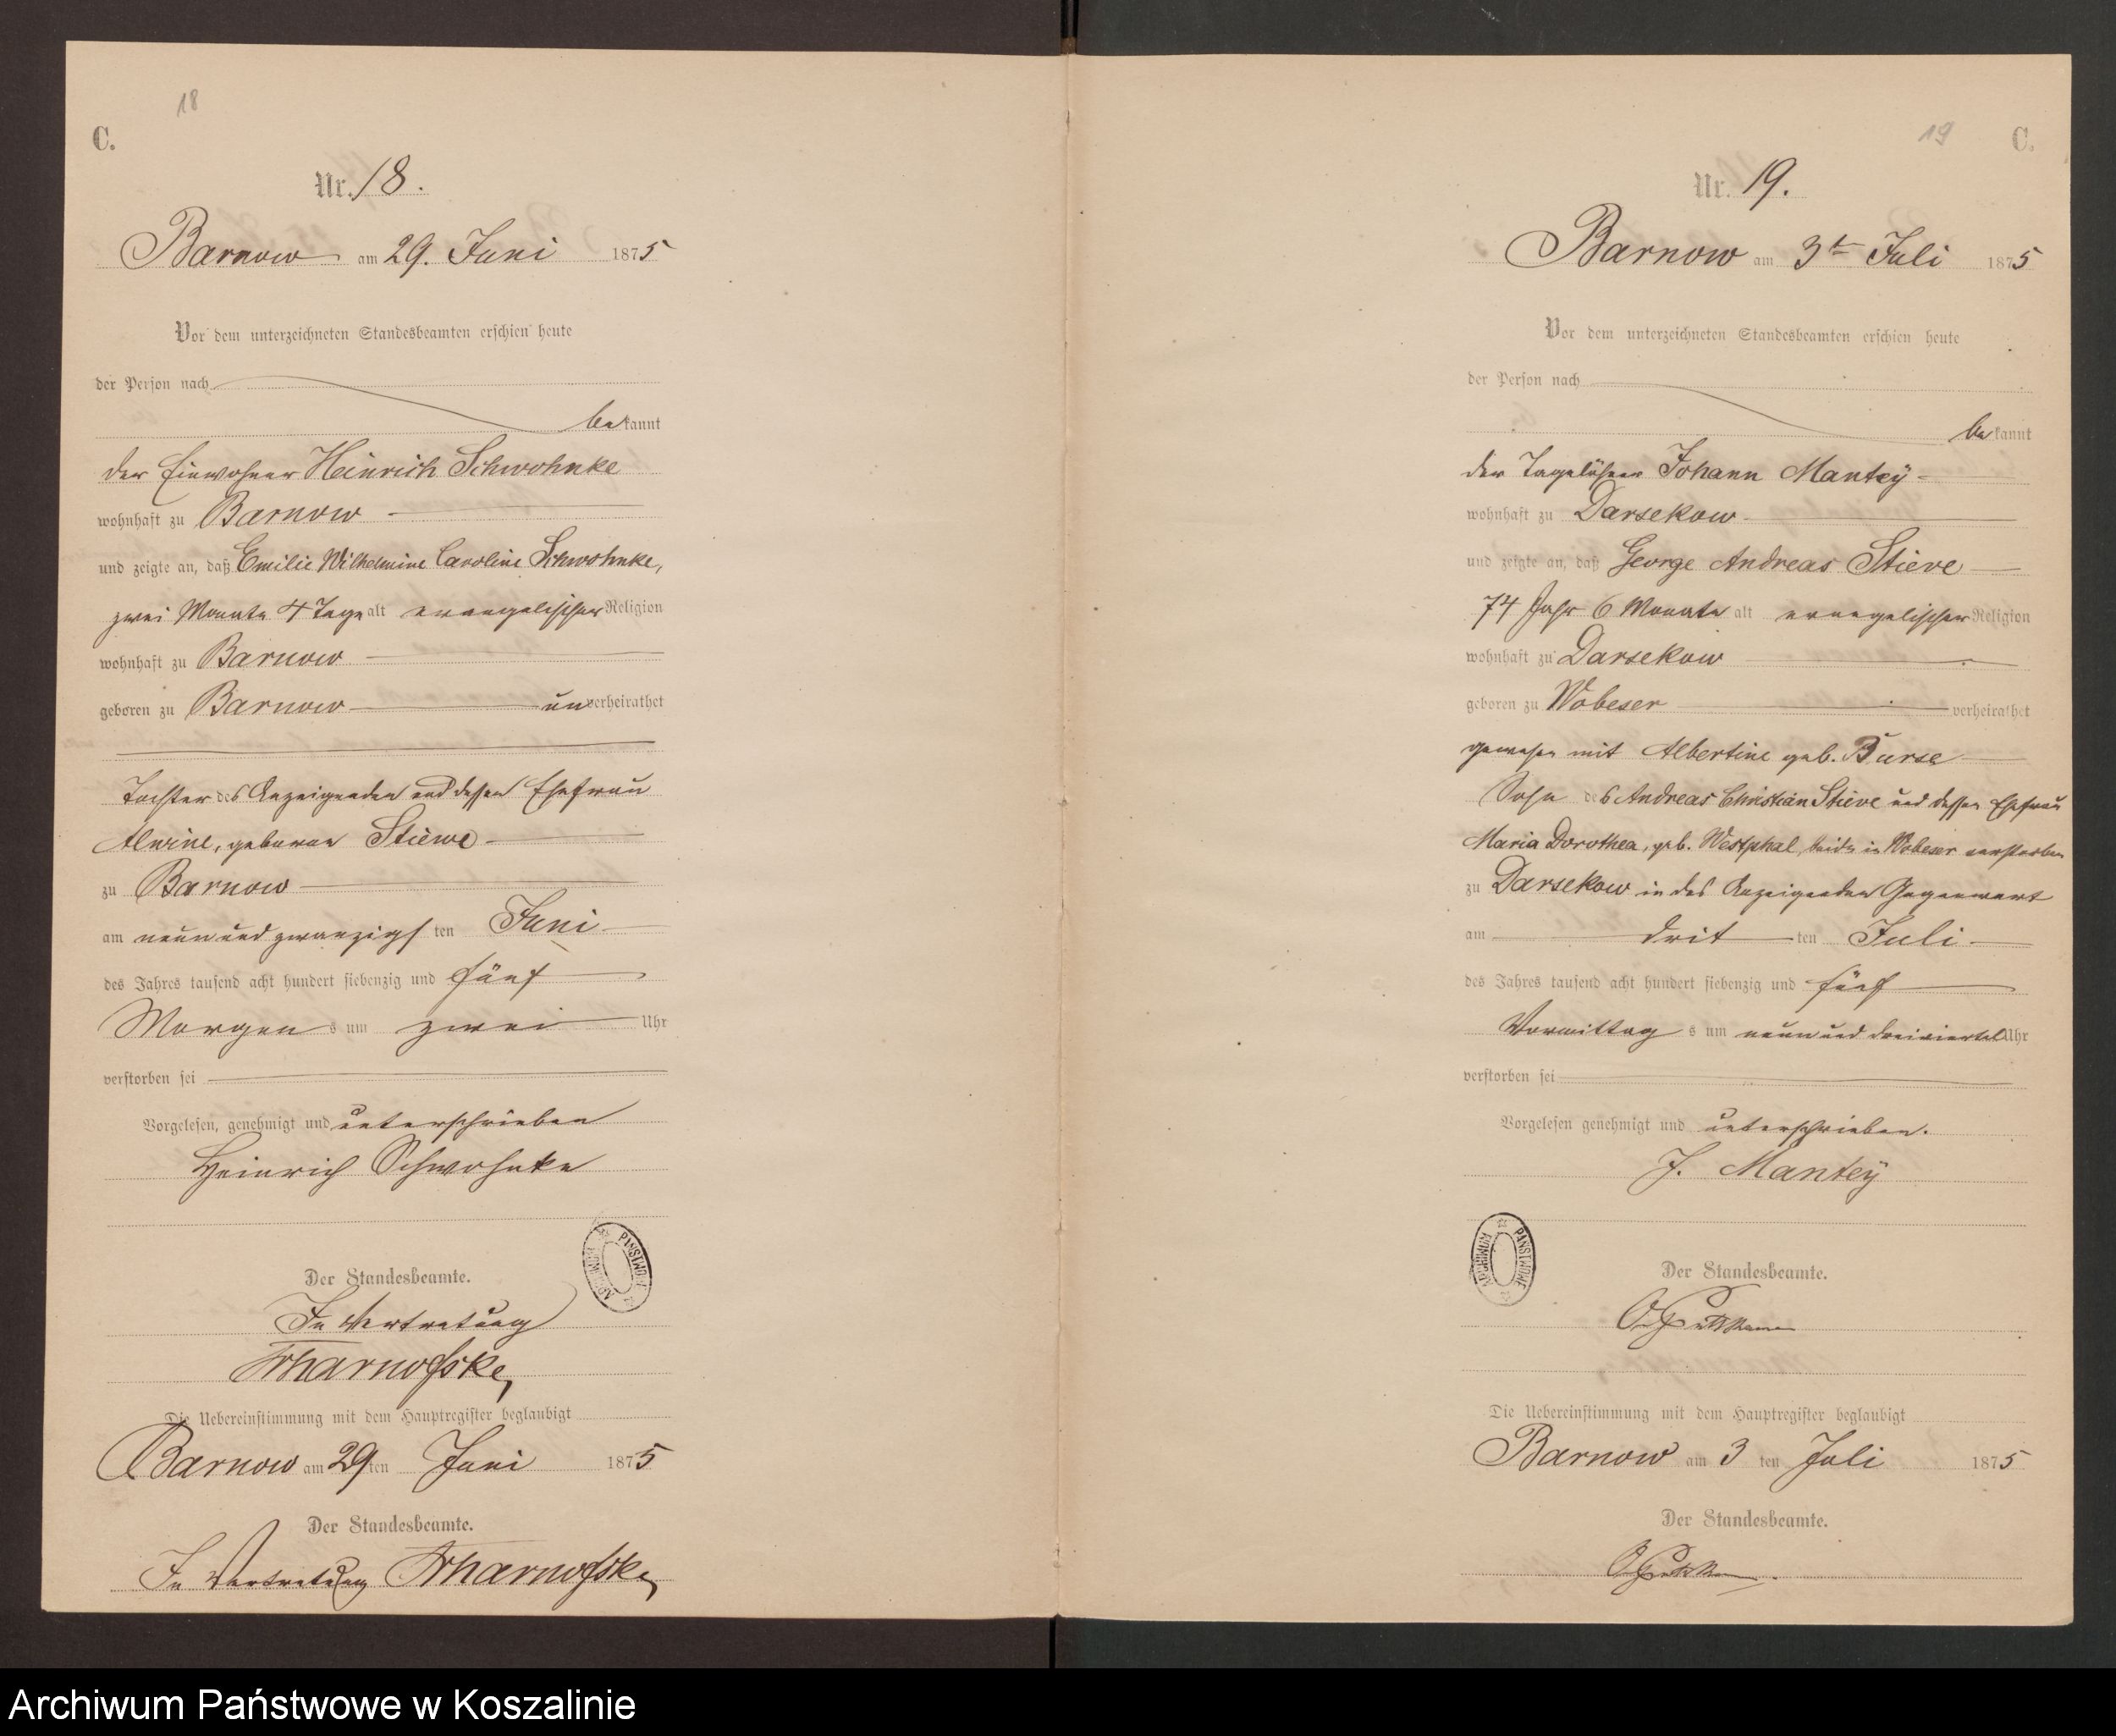 18
C.
Nr. 18.
Barnow am 29. Juni 1875
Vor dem unterzeichneten Standesbeamten erschien heute
der Person nach
bekannt
der Einwohner Heinrich Schwohnke
wohnhaft zu Barnow
und zeigte an, daß Emilie Wilhelmine Caroline Schwohnke,
zwei Monate 4 Tage alt evangelischer Religion
wohnhaft zu Barnow
geboren zu Barnow unverheirathet
Tochter des Anzeigenden und dessen Ehefrau
Alwine, geborne Stiewe
zu Barnow
am neun und zwanzigsten Juni
des Jahres tausend acht hundert siebenzig und fünf
Morgens um zwei Uhr
verstorben sei
Vorgelesen, genehmigt und unterschrieben
Heinrich Schwohnke
ARCHIWUM PAŃSTWOWE
Der Standesbeamte.
In Vertretung
Die Uebereinstimmung mit dem Hauptregister beglaubigt
Barnow am 29ten Juni 1875
Der Standesbeamte.
In Vertretung
19
C.
Nr. 19.
Barnow am 3t Juli 1875
Vor dem unterzeichneten Standesbeamten erschien heute
der Person nach
bekannt
der Tagelöhner Johann Mantëy
wohnhaft zu Darsekow
und zeigte an, daß George Andreas Stieve
74 Jahr 6 Monate alt evangelischer Religion
wohnhaft zu Darsekow
geboren zu Wobeser verheirathet
gewesen mit Albertine geb. Burse
Sohn des Andreas Christian Stieve und dessen Ehefrau
Maria Dorothea, geb. Westphal, beide in Wobeser verstorben
zu Darsekow in des Anzeigenden Gegenwart
am dritten Juli
des Jahres tausend acht hundert siebenzig und fünf
Vormittags um neun und dreiviertel Uhr
verstorben sei
Vorgelesen genehmigt und unterschrieben.
J. Mantëy
ARCHIWUM PAŃSTWOWE
Der Standesbeamte.
Die Uebereinstimmung mit dem Hauptregister beglaubigt
Barnow am 3 ten Juli 1875
Der Standesbeamte.
Archiwum Państwowe w Koszalinie